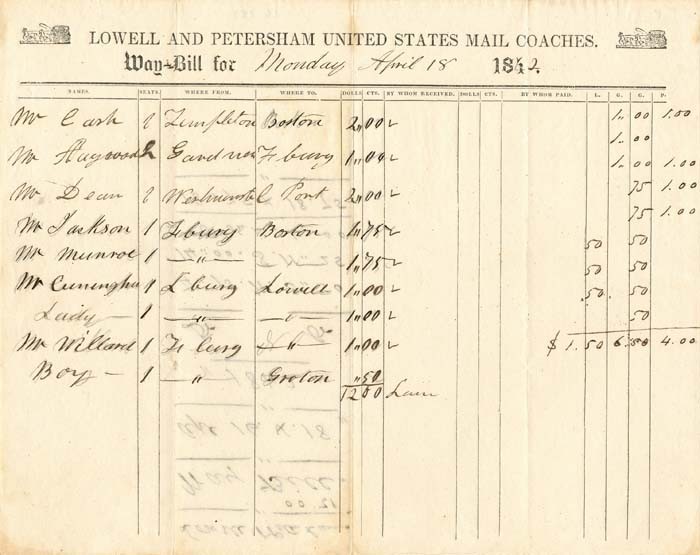 LOWELL AND PETERSHAM UNITED STATES MAIL COACHES.
Way-Bill for Monday April 18 1842
NAMES. SEATS. WHERE FROM. WHERE TO. DOLLS CTS. BY WHOM RECEIVED. DOLLS CTS. BY WHOM PAID. L. G. C. P.
Mr Cash 1 Templeton Boston 2,,00 1.. 00 1.00
1.. 00
Mr Haywood 2 Gardner F burg 1,,00 1.. 00 1.00
Mr Dean 1 Westminster C Port 2,,00 75 1.00
75 1.00
Mr Jackson 1 F burg Boston 1,,75 50 50
Mr Munroe 1 — " — 1,,75 50 50
Mr Cuningham 1 L burg Lowell 1,,00 50 50
Lady — 1 — " — — " — 1,,00 50
Mr Willard 1 F burg — " — 1,,00 $ 1.50 6.50 4.00
Boy — 1 — " — Groton ,,50
12 00